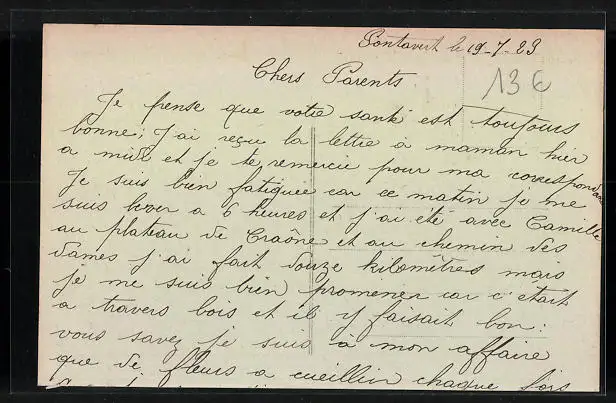 Pontavert le 19-7-23
13 €
Chers Parents
Je pense que votre santé est toujours
bonne; j'ai reçu la lettre a maman hier
a midi et je te remercie pour ma correspondance
Je suis bien fatiguée car ce matin je me
suis lever a 6 heures et j'ai été avec Camille
au plateau de Craône et au chemin des
dames j'ai fait douze kilomètres mais
je me suis bien promener car c'était
a travers bois et il y faisait bon:
vous savez je suis à mon affaire
que de fleurs a cueillir chaque fois